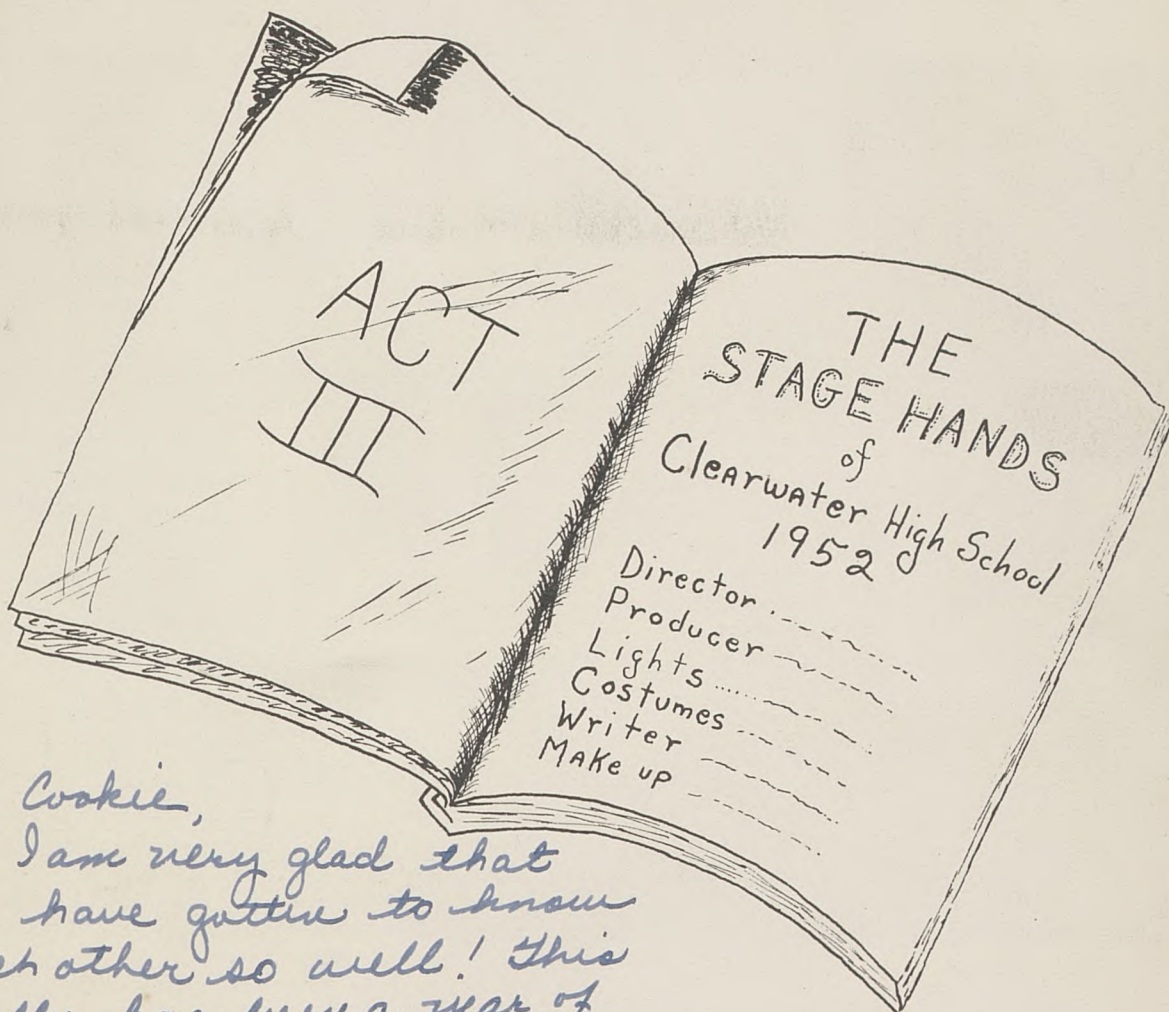 ACT
III
THE
STAGE HANDS
of
Clearwater High School
1952
Director
Producer
Lights
Costumes
Writer
Make up
Cookie,
I am very glad that
have gotten to know
other so well! This
has been a year of